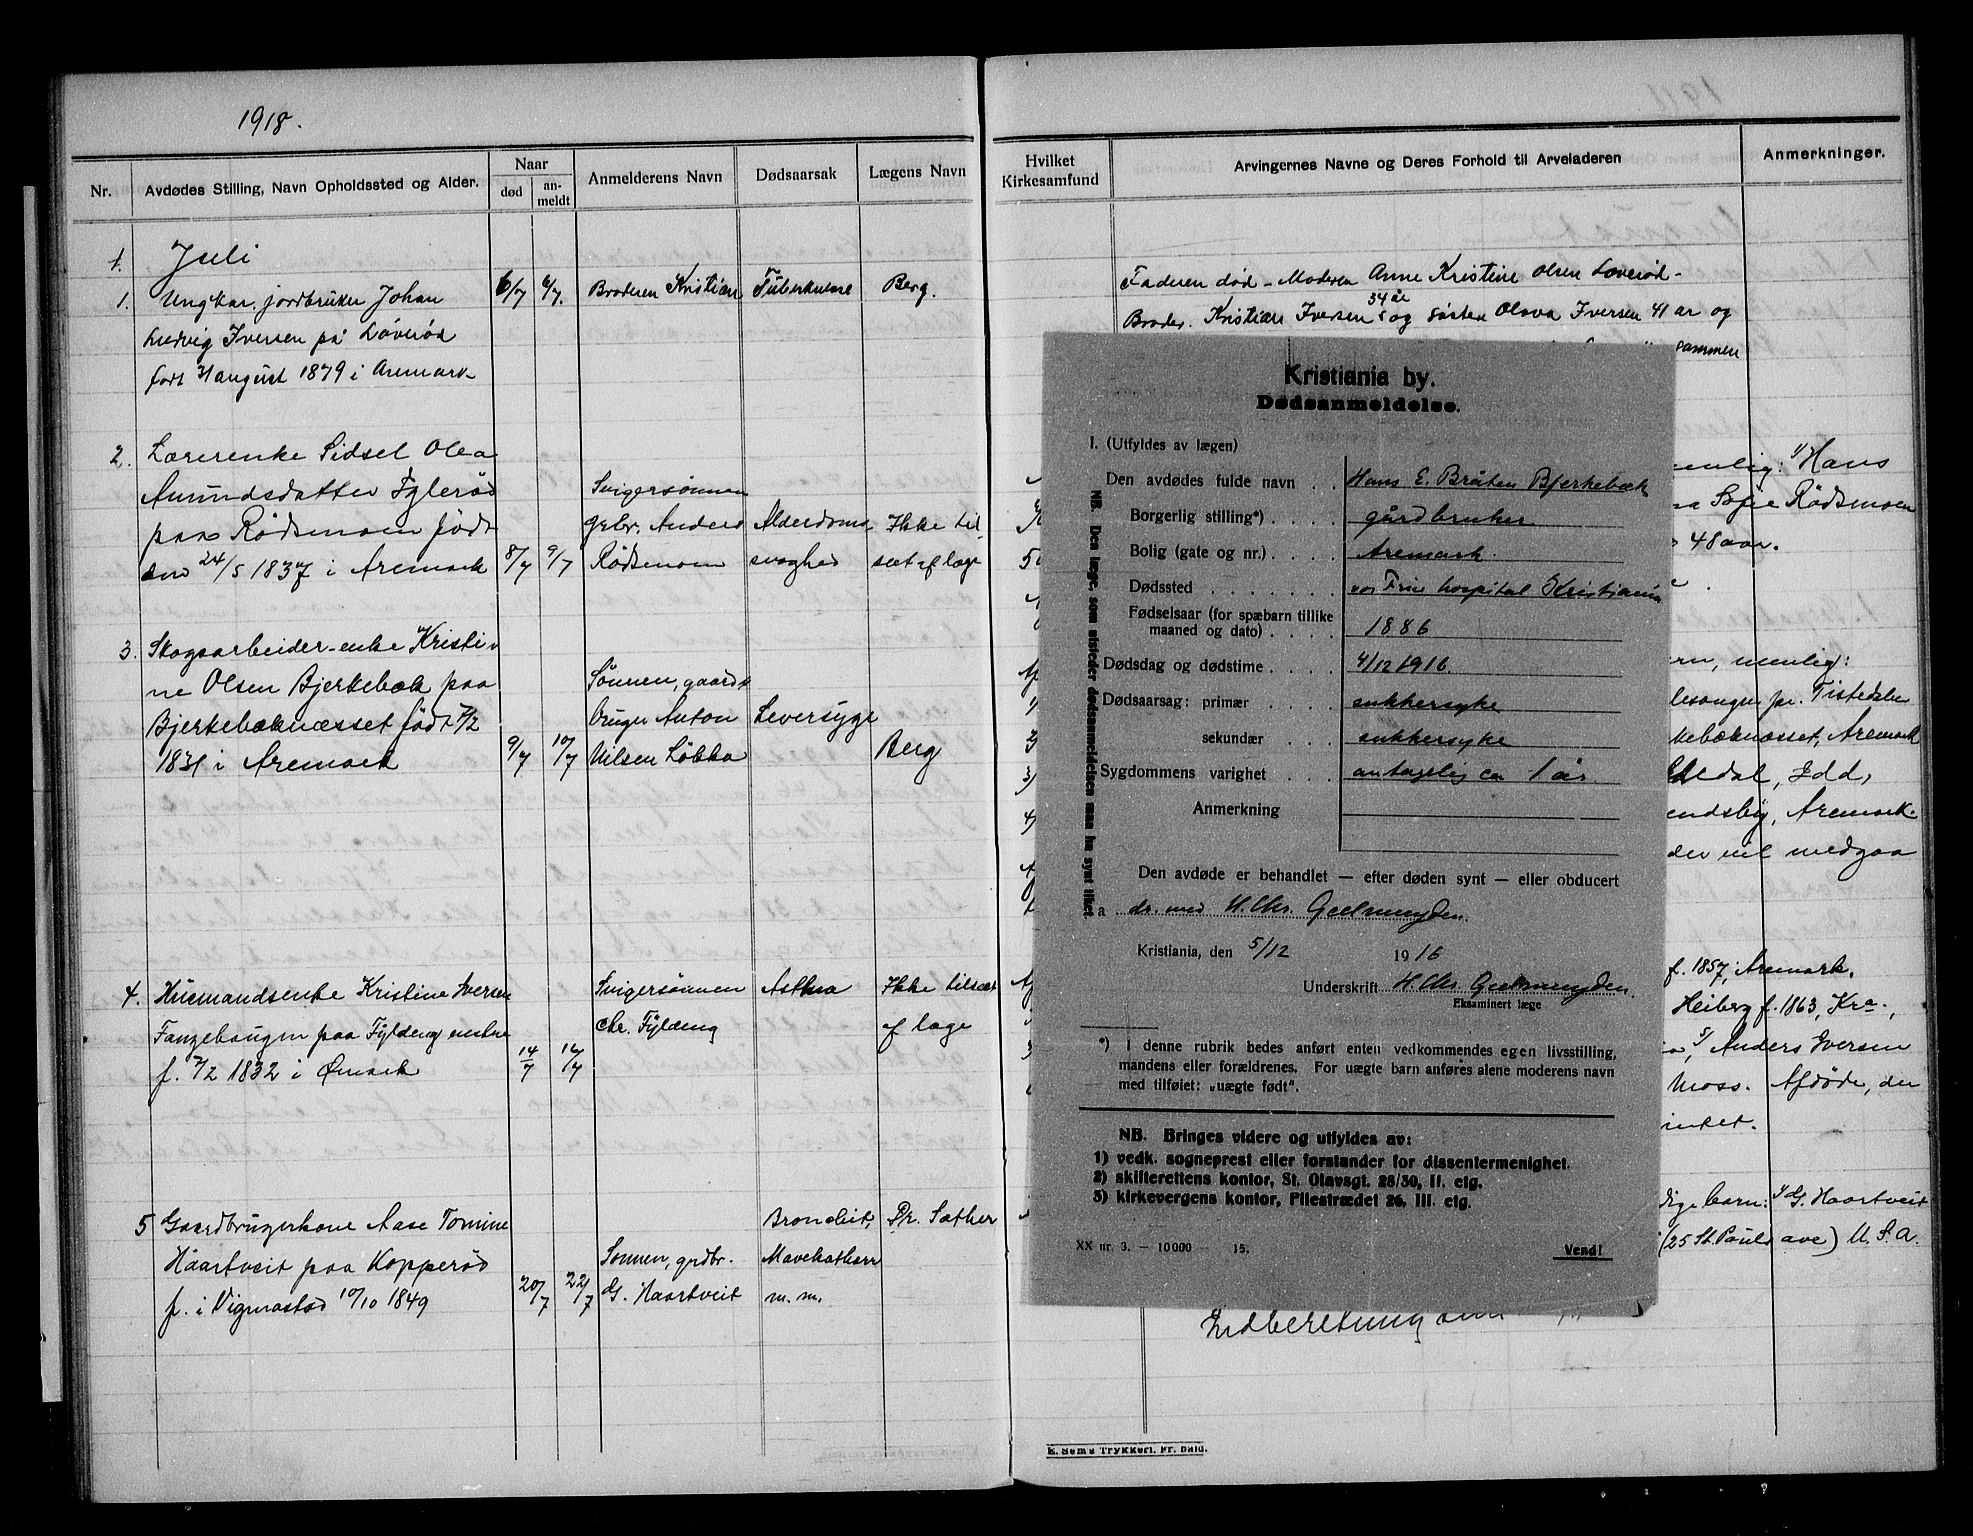 1918.
Nr.
Avdødes Stilling, Navn Opholdssted og Alder.
Naar
død
an-
meldt
Anmelderens Navn
Dødsaarsak
Lægens Navn
Juli
1.
1. Ungkar, jordbruker Johan
Ludvig Iversen på Löveröd
født 31 august 1879 i Aremark
6/7 6/7.
Broderen Kristian
Tuberkulose
Berg.
2. Lærerenke Sidsel Olea
Amundsdatter Fglerød
paa Rødsmoen født
den 24/5 1837 i Aremark
8/7 9/7
Svigersønnen
gebr. Anders
Rødsmoen
Alderdoms
svaghed
Ikke til,
set af læge
3. Skogsarbeider-enke Kristi-
ne Olsen Bjerkebæk paa
Bjerkebæknæsset født 7/2
1831 i Aremark
9/7 10/7
Sønnen, gaard-
bruger Anton
Nilsen Løkka
Leversyge
Berg
4. Husmandsenke Kristine Iversen
paa Fylderng
f. 7/2 1832 i Ømark
14/7 16/7
Svigersønnen
Chr. Fylderng
Asthma
Ikke tilsæt
af læge
5 Gaardbrugerkone Aase Tomine
Haartveit paa Kopperød
f. i Vigmostad 10/10 1849
20/7 22/7
Sønnen, grdbr.
G. Haartveit
Bronchit,
Mavekatharr
m. m.
Dr. Sæther
Hvilket
Kirkesamfund
Arvingernes Navne og Deres Forhold til Arveladeren
Anmerkninger.
Faderen død - Moderen Anne Kristine Olsen Löveröd-
34 år
Broder. Kristian Iversen og søster Olava Iversen 41 år og
sammen
enlig: 1/ Hans
Sofie Rødsmoen
48 aar.
rn, nemlig:
lesangen pr. Tistedalen
kebæknæsset, Aremark
dal, Idd,
endsby, Aremark.
der vil medgaa
f. 1857, Aremark.
Heiberg f. 1863, Kra-,
5/ Anders Iversen
Moss. Afdøde, der
intet.
dige barn: 1/ G. Haartveit
(25 St. Pauls ave) U. S. A.
Indberetning
E. Sems Trykkeri. Fr. Hald.
Kristiania by.
Dødsanmeldelse.
I. (Utfyldes av lægen)
Den avdødes fulde navn . . Hans E. Bråten Bjerkebæk
Borgerlig stilling*) . . . . gårdbruker
Bolig (gate og nr.) . . . . Aremark.
Dødssted . . . . . . . vor Frue hospital Kristiania
Fødselsaar (for spæbarn tillike
maaned og dato) . . . . 1886
Dødsdag og dødstime . . . . 4/12 1916.
Dødsaarsag: primær . . . . sukkersyke
sekundær . . . sukkersyke
Sygdommens varighet . . . antagelig ca 1 år
Anmerkning
NB. Den læge, som utsteder dødsanmeldelsen maa ha synt liket.
Den avdøde er behandlet — efter døden synt — eller obducert
a dr. med H. Chr. Geelmuyden.
Kristiania, den 5/12 1916
Underskrift H. Chr. Geelmuyden.
Eksaminert læge
*) I denne rubrik bedes anført enten vedkommendes egen livsstilling,
mandens eller forældrenes. For uægte barn anføres alene moderens navn
med tilføiet: „uægte født".
NB. Bringes videre og utfyldes av:
1) vedk. sogneprest eller forstander for dissentermenighet.
2) skifterettens kontor, St. Olavsgt. 28/30, II. etg.
3) kirkevergens kontor, Pilestrædet 26, III. etg.
XX nr. 3. — 10000 — 15.
Vend!